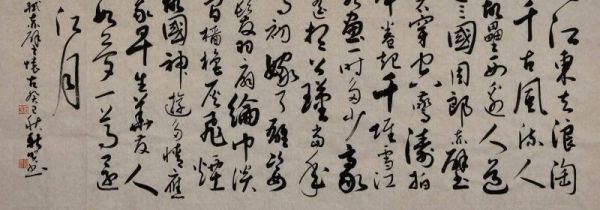 江東去浪淘
千古風流人
故壘西邊人道
三國周郎赤壁
穿空驚濤拍
卷起千堆雪江
畫一時多少豪
遙想公瑾當年
喬初嫁了雄姿
發羽扇綸巾談
間檣櫓灰飛煙
故國神遊多情應
我早生華友人
如夢一尊還
江月
軾赤壁懷古癸巳秋